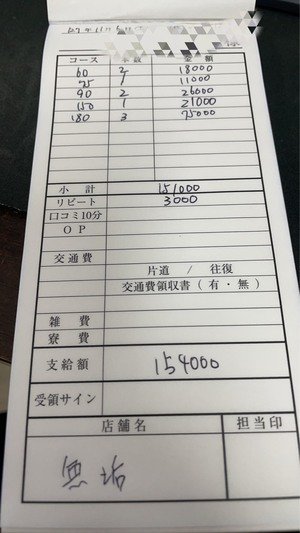 コース 本数 金額
60 2 18000
75 1 11000
90 2 26000
150 1 21000
180 3 75000
小計 151000
リピート 3000
口コミ10分
OP
交通費
片道 / 往復
交通費領収書 ( 有 ・ 無 )
雑費
寮費
支給額 154000
受領サイン
店舗名 担当印
無垢